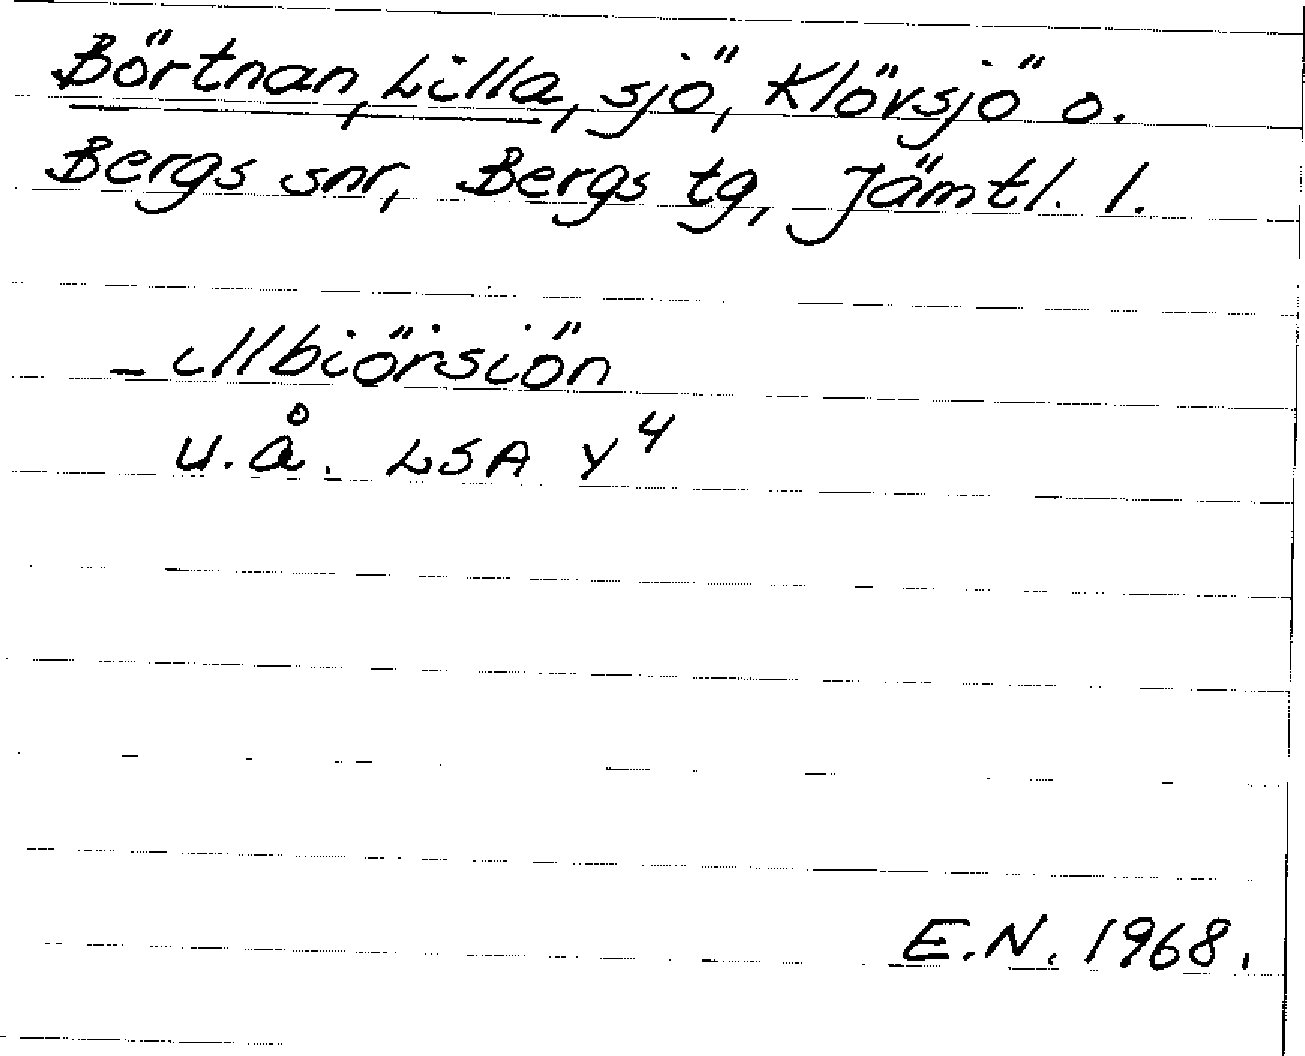 Börtnan, Lilla, sjö, Klövsjö o.
Bergs snr, Bergs tg, Jämtl. l.
u.å. LSA Y4
E.N. 1968.